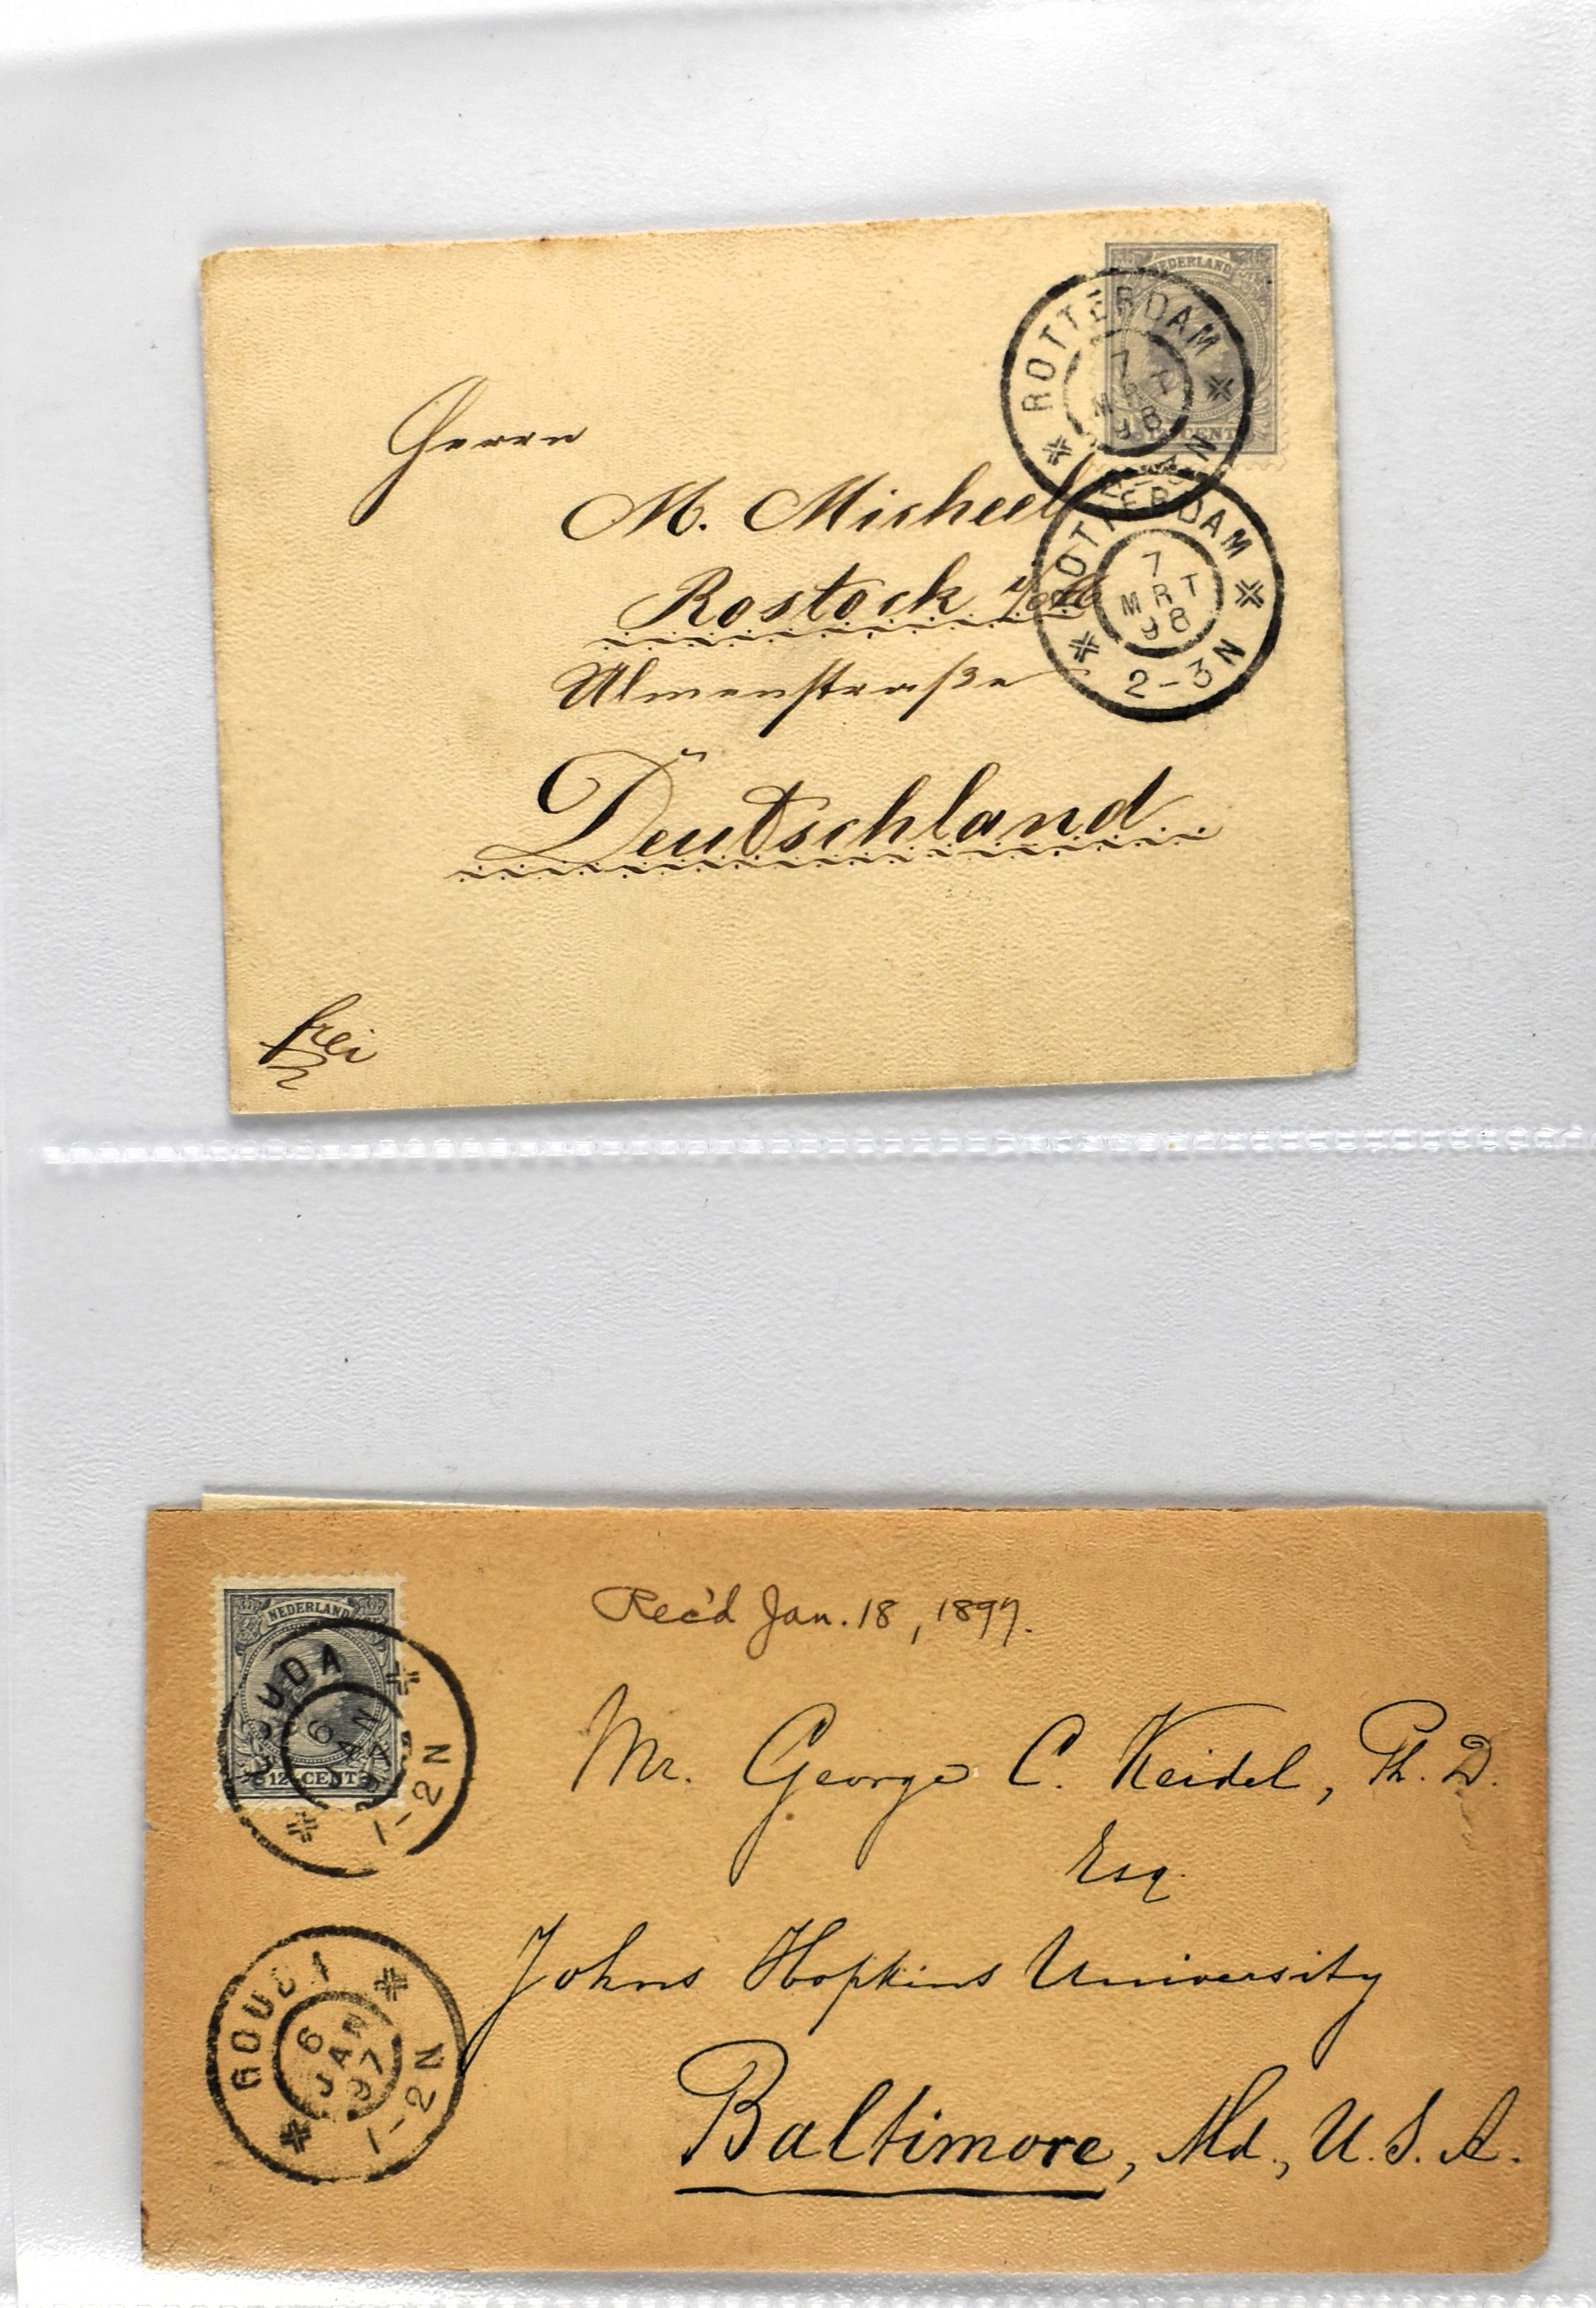 NEDERLAND
CENT
ROTTERDAM
7
MRT
98
2-3N
ROTTERDAM
7
MRT
98
2-3N
Herrn
M. Micheel
Rostock i/M
Ulmenstraße
Deutschland
frei
NEDERLAND
12½ CENT
GOUDA
6
JAN
97
1-2N
Rec'd Jan. 18, 1897.
Mr. George C. Keidel, Ph. D.
Esq.
Johns Hopkins University
Baltimore, Md., U. S. A.
GOUDA
6
JAN
97
1-2N